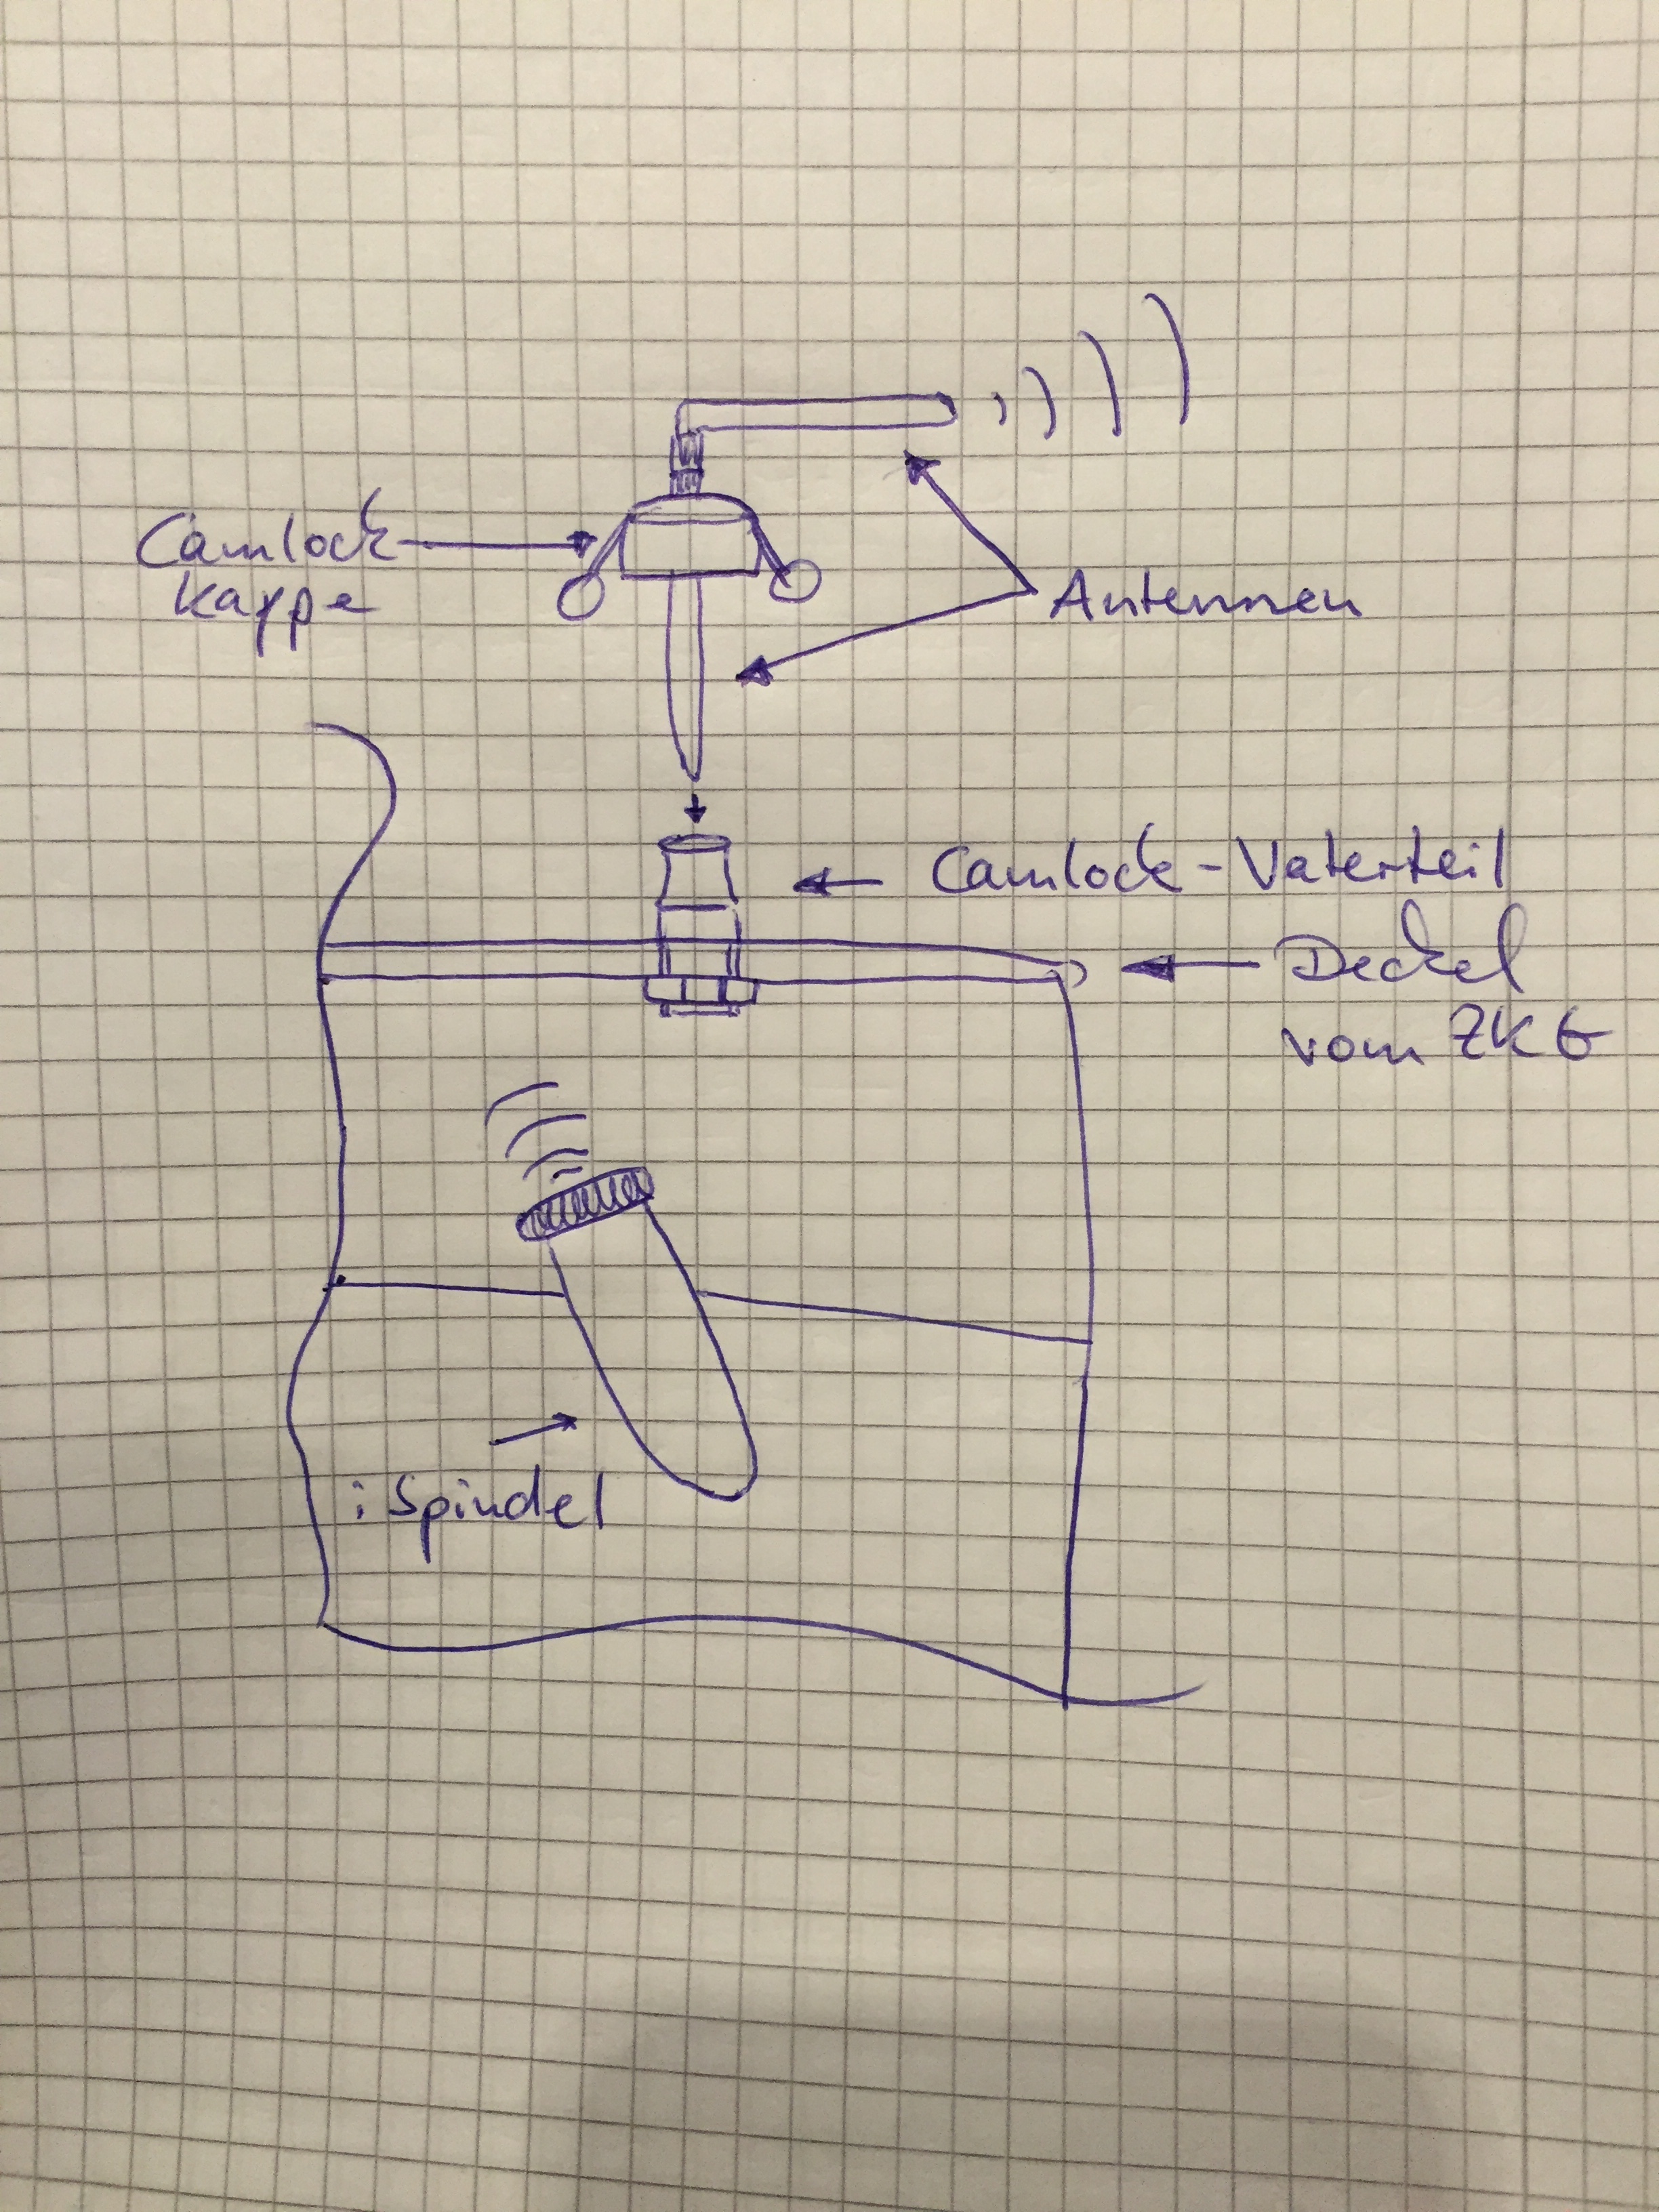 Camlock
Kappe
Antennen
Camlock-Vaterteil
Deckel
vom ZKG
iSpindel